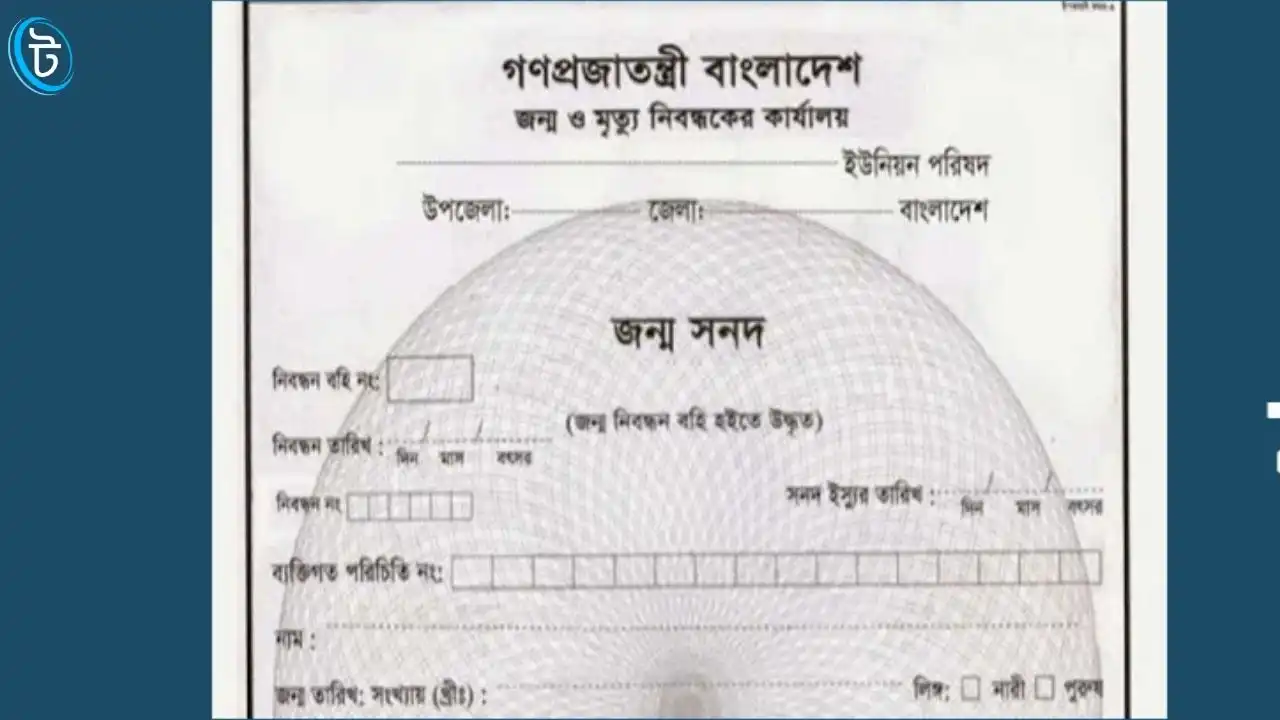 ট
গণপ্রজাতন্ত্রী বাংলাদেশ
জন্ম ও মৃত্যু নিবন্ধকের কার্যালয়
ইউনিয়ন পরিষদ
উপজেলা: জেলা: বাংলাদেশ
জন্ম সনদ
নিবন্ধন বহি নং:
(জন্ম নিবন্ধন বহি হইতে উদ্ধৃত)
নিবন্ধন তারিখ : / /
দিন মাস বৎসর
সনদ ইস্যুর তারিখ : / /
দিন মাস বৎসর
নিবন্ধন নং
ব্যক্তিগত পরিচিতি নং:
নাম :
জন্ম তারিখ: সংখ্যায় (খ্রীঃ) : লিঙ্গ: নারী পুরুষ